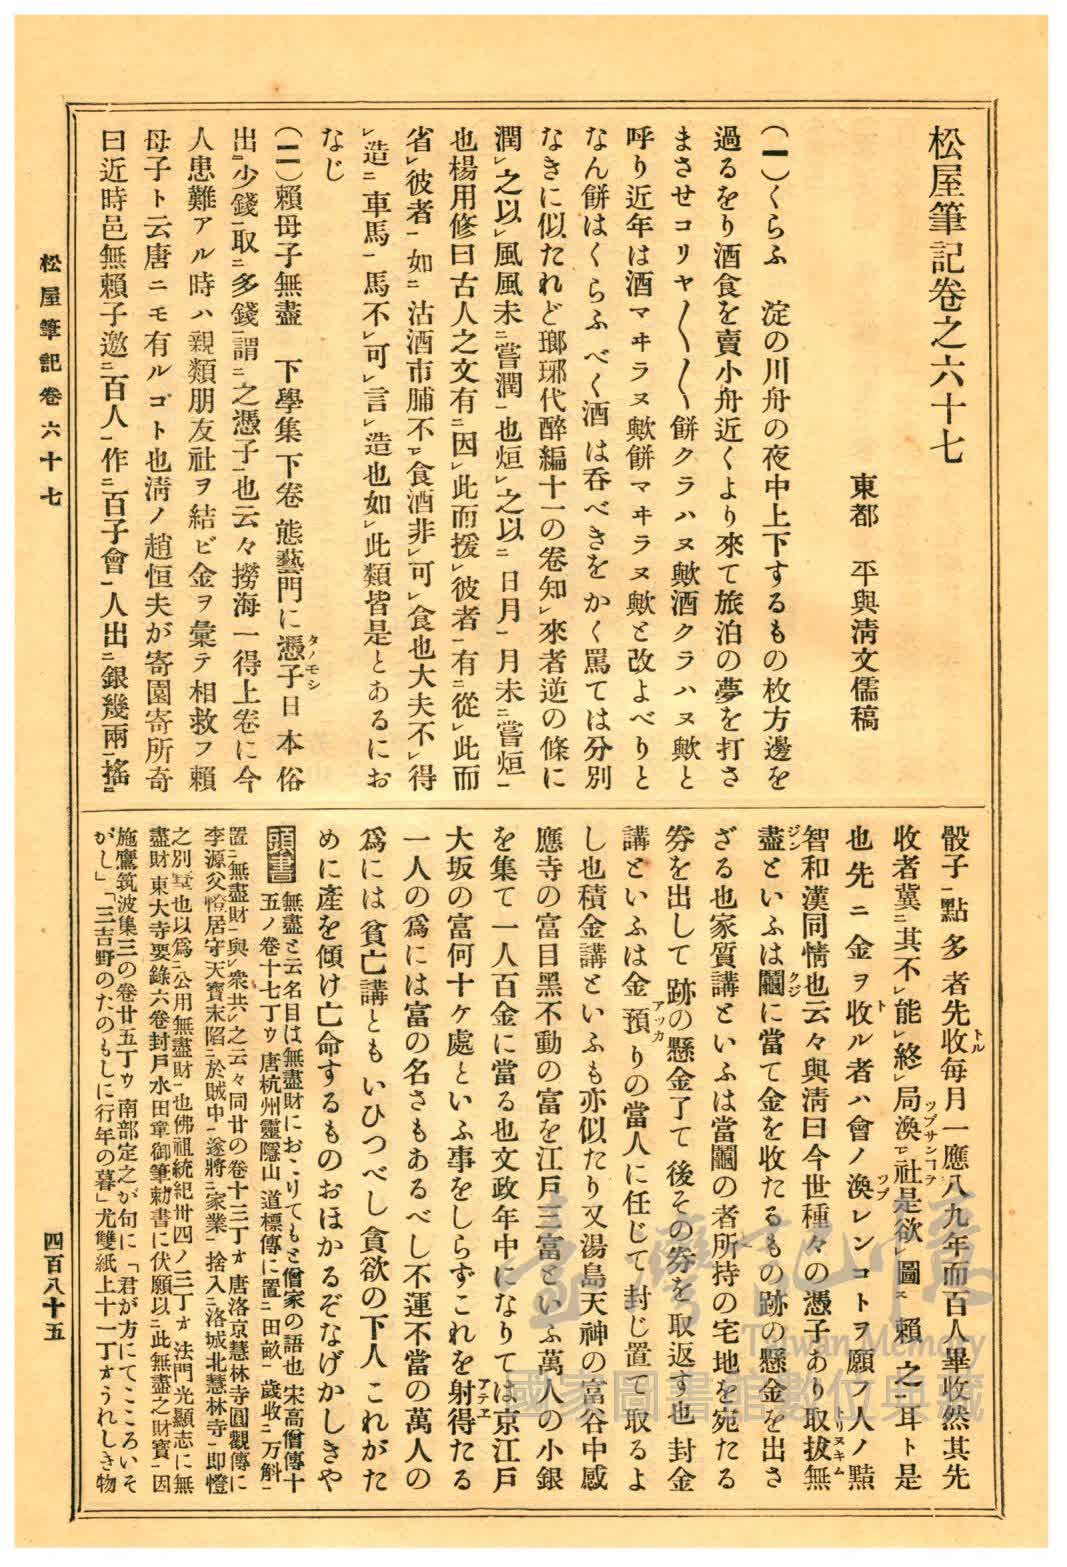 松屋筆記卷之六十七
東都　平與淸文儒稿
(一)くらふ　淀の川舟の夜中上下するもの枚方邊を
過るをり酒食を賣小舟近くより來て旅泊の夢を打さ
まさせコリヤ〱〱餅クラハヌ歟酒クラハヌ歟と
呼り近年は酒マヰラヌ歟餅マヰラヌ歟と改よべりと
なん餅はくらふべく酒は呑べきをかく罵ては分別
なきに似たれど瑯琊代醉編十一の卷知レ來者逆の條に
潤レ之以レ風風未ニ嘗潤一也烜レ之以ニ日月一月未ニ嘗烜一
也楊用修曰古人之文有ニ因レ此而援レ彼者一有ニ從レ此而
省レ彼者一如ニ沽酒市脯不下食酒非レ可レ食也大夫不レ得
レ造ニ車馬一馬不レ可レ言レ造也如レ此類皆是とあるにお
なじ
(二)賴母子無盡　下學集下卷態藝門に憑子タノモシ日本俗
出ニ少錢一取ニ多錢一謂ニ之憑子一也云々撈海一得上卷に今
人患難アル時ハ親類朋友社ヲ結ビ金ヲ彙テ相救フ賴
母子ト云唐ニモ有ルゴト也淸ノ趙恒夫が寄園寄所奇
曰近時邑無賴子邀ニ百人一作ニ百子會一人出ニ銀幾兩一搖ニ
骰子一點多者先收トル每月一應八九年而百人畢收然其先
收者冀ニ其不レ能レ終レ局渙ツブサンコヲテ社是欲レ圖ニ賴之耳ト是
也先ニ金ヲ收トル者ハ會ノ渙ツブレンコトヲ願フ人ノ黠
智和漢同情也云々與淸曰今世種々の憑子あり取拔トリヌキム無
盡ジンといふは鬮クジに當て金を收たるもの跡の懸金を出さ
ざる也家質講といふは當鬮の者所持の宅地を宛たる
券を出して跡の懸金了て後その券を取返す也封金
講といふは金預アツカりの當人に任じて封じ置て取るよ
し也積金講といふも亦似たり又湯島天神の富谷中感
應寺の富目黑不動の富を江戶三富といふ萬人の小銀
を集て一人百金に當る也文政年中になりては京江戶
大坂の富何十ケ處といふ事をしらずこれを射アテエ得たる
一人の爲には富の名さもあるべし不運不當の萬人の
爲には貧亡講ともいひつべし貪欲の下人これがた
めに產を傾け亡命するものおほかるぞなげかしきや
頭書 無盡と云名目は無盡財におこりてもと僧家の語也宋高僧傳十
五ノ卷十七丁ウ唐杭州靈隱山道標傳に置ニ田畝一歲收ニ万斛一
置ニ無盡財一與レ衆共レ之云々同廿の卷十三丁オ唐洛京慧林寺圓觀傳に
李源父憕居守天寶末陷ニ於賊中一遂將ニ家業一捨入ニ洛城北慧林寺一即憕
之別墅也以爲ニ公用無盡財一也佛祖統紀卅四ノ三丁オ法門光顯志に無
盡財東大寺要錄六卷封戶水田章御筆勅書に伏願以ニ此無盡之財寶一因
施鷹筑波集三の卷廿五丁ウ南部定之が句に「君が方にてこころいそ
がし」「三吉野のたのもしに行年の暮」尤雙紙上十一丁オうれしき物
松屋筆記卷六十七
四百八十五
臺灣記憶
Taiwan Memory
國家圖書館數位典藏